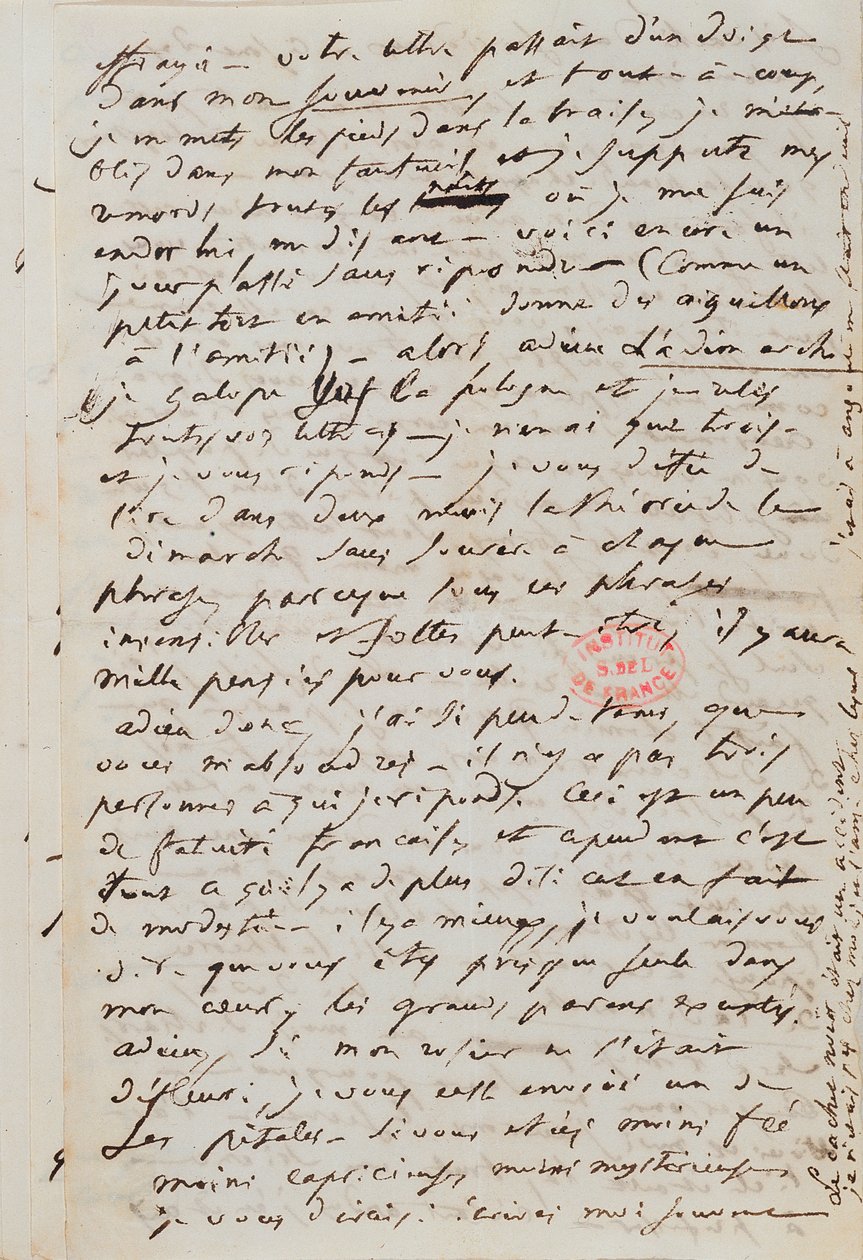 effrayé — votre lettre passait d'un doigt
dans mon souvenir, et tout-à-coup,
je m mets les pieds dans la braise, je m'éta-
blis dans mon fauteuil et je supporte mes
remords toutes les nuits où je me suis
endormi, me disant — voici encore un
jour passé sans répondre — (Comme un
petit tort en amitié donne des aiguillons
à l'amitié) — alors adieu La dion arche
je galope vers la pologne et je relis
toutes vos lettres — je n'en ai que trois —
et je vous réponds — je vous défie de
lire dans deux mois la théorie de la
démarche sans sourire à chaque
phrase, parceque sous ces phrases
insensibles et sottes peut-être, il y aura
mille pensées pour vous.
adieu donc, j'ai si peu de tems, que
vous m'absoudrez — il n'y a pas trois
personnes à qui je réponds. Ceci est un peu
de fatuité française, et cependant c'est
tout ce qu'il y a de plus délicat en fait
de modestie — il y a mieux, je voulais vous
dire que vous êtes presque seule dans
mon cœur, les grands parens exceptés.
adieu, si mon rosier ne s'était
défleuri, je vous eusse envoié un de
ses pétales — si vous étiez moins fée
moins capricieuse, moins mystérieuse
je vous dirais : écrivez moi souvent
Le cachet noir était un accident
je n'étais pas chez moi et l'ami chez lequel
j'étais à angoulême était en deuil
INSTITUT
S. DE L.
DE FRANCE